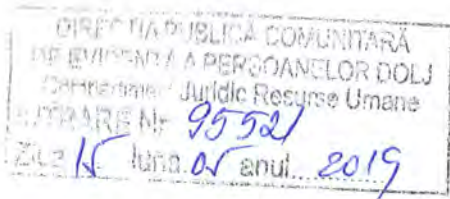 DIRECȚIA PUBLICĂ COMUNITARĂ
DE EVIDENȚĂ A PERSOANELOR DOLJ
Juridic Resurse Umane
INTRARE Nr 95521
Ziua 15 luna 05 anul 2019